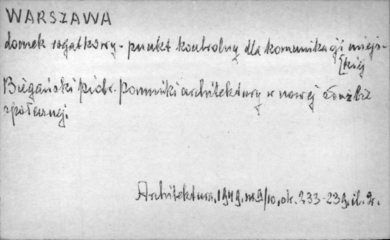 WARSZAWA
domek rogatkowy - punkt kontrolny dla komunikacji miejs-
[kiej
Biegański Piotr. Pomniki architektury w nowej służbie
społecznej.
Architektura, 1949, nr 9/10, str. 233-239, il. 2.